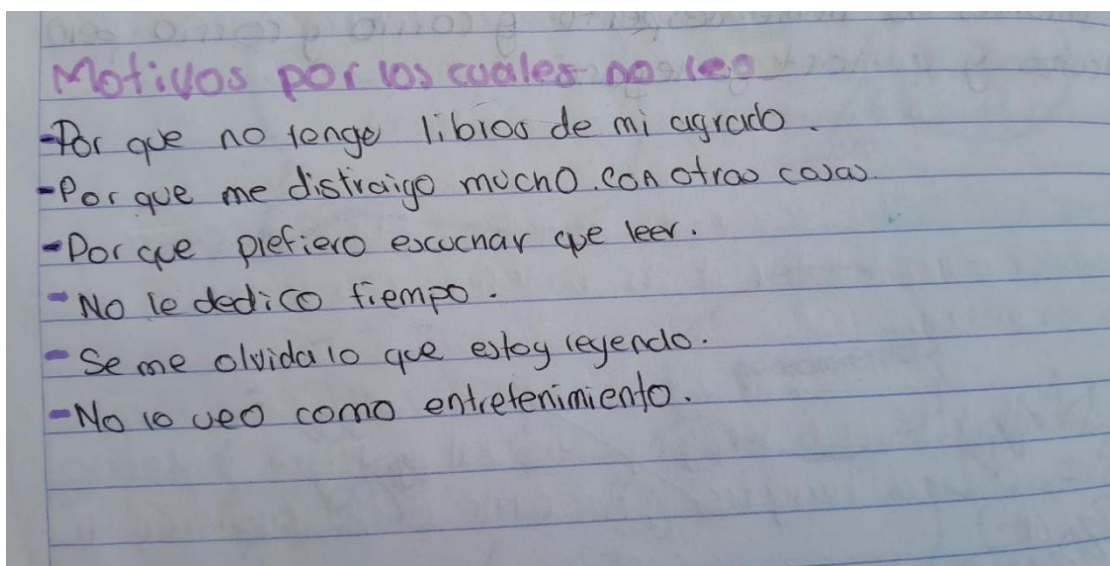 Motivos por los cuales no leo
-Por que no tengo libros de mi agrado.
-Por que me distraigo mucho con otras cosas.
-Por que prefiero escuchar que leer.
-No le dedico tiempo.
-Se me olvida lo que estoy leyendo.
-No lo veo como entretenimiento.